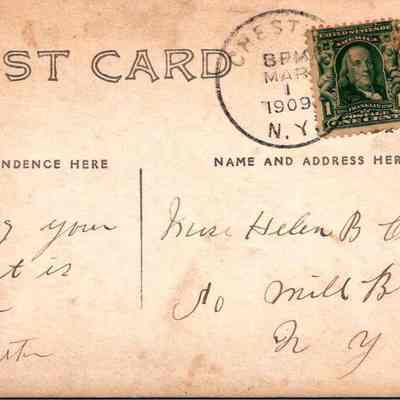 ST CARD
CHEST
8 PM
MAR
1
1909
N.Y.
UNITED STATES OF
AMERICA
FRANKLIN
POSTAGE
1 ONE CENT
NDENCE HERE
NAME AND ADDRESS HER
your
t is
Miss Helen B
Mill B
N Y